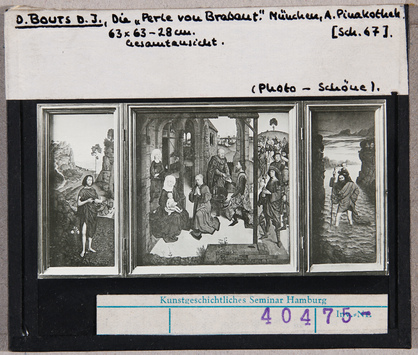 D. Bouts d. J., Die „Perle von Brabant". München, A. Pinakothek.
63 x 63 – 28 cm. [Sch. 67].
Gesamtansicht.
(Photo – Schöne).
Kunstgeschichtliches Seminar Hamburg
40475- Inv.-Nr.